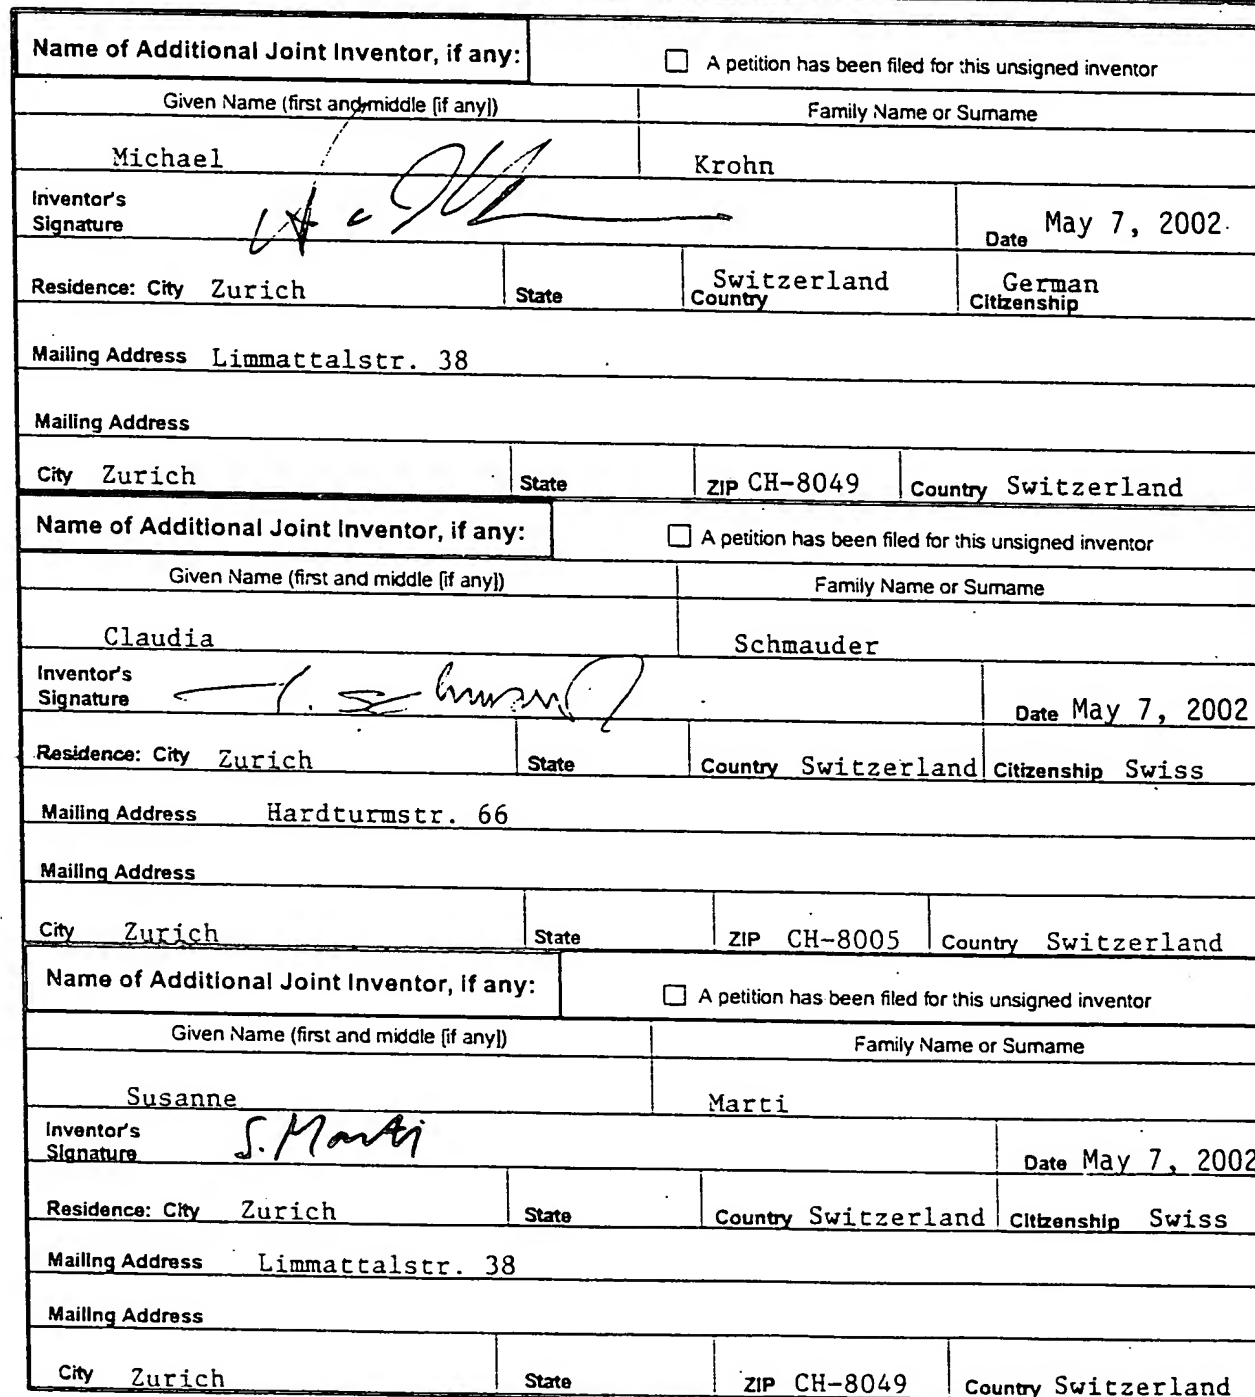 Name of Additional Joint Inventor, if any: ☐ A petition has been filed for this unsigned inventor
Given Name (first and middle [if any]) Family Name or Surname
Michael Krohn
Inventor's
Signature Date May 7, 2002
Residence: City Zurich State Country Switzerland Citizenship German
Mailing Address Limmattalstr. 38
Mailing Address
City Zurich State ZIP CH-8049 Country Switzerland
Name of Additional Joint Inventor, if any: ☐ A petition has been filed for this unsigned inventor
Given Name (first and middle [if any]) Family Name or Surname
Claudia Schmauder
Inventor's
Signature Date May 7, 2002
Residence: City Zurich State Country Switzerland Citizenship Swiss
Mailing Address Hardturmstr. 66
Mailing Address
City Zurich State ZIP CH-8005 Country Switzerland
Name of Additional Joint Inventor, if any: ☐ A petition has been filed for this unsigned inventor
Given Name (first and middle [if any]) Family Name or Surname
Susanne Marti
Inventor's
Signature S. Marti Date May 7, 2002
Residence: City Zurich State Country Switzerland Citizenship Swiss
Mailing Address Limmattalstr. 38
Mailing Address
City Zurich State ZIP CH-8049 Country Switzerland